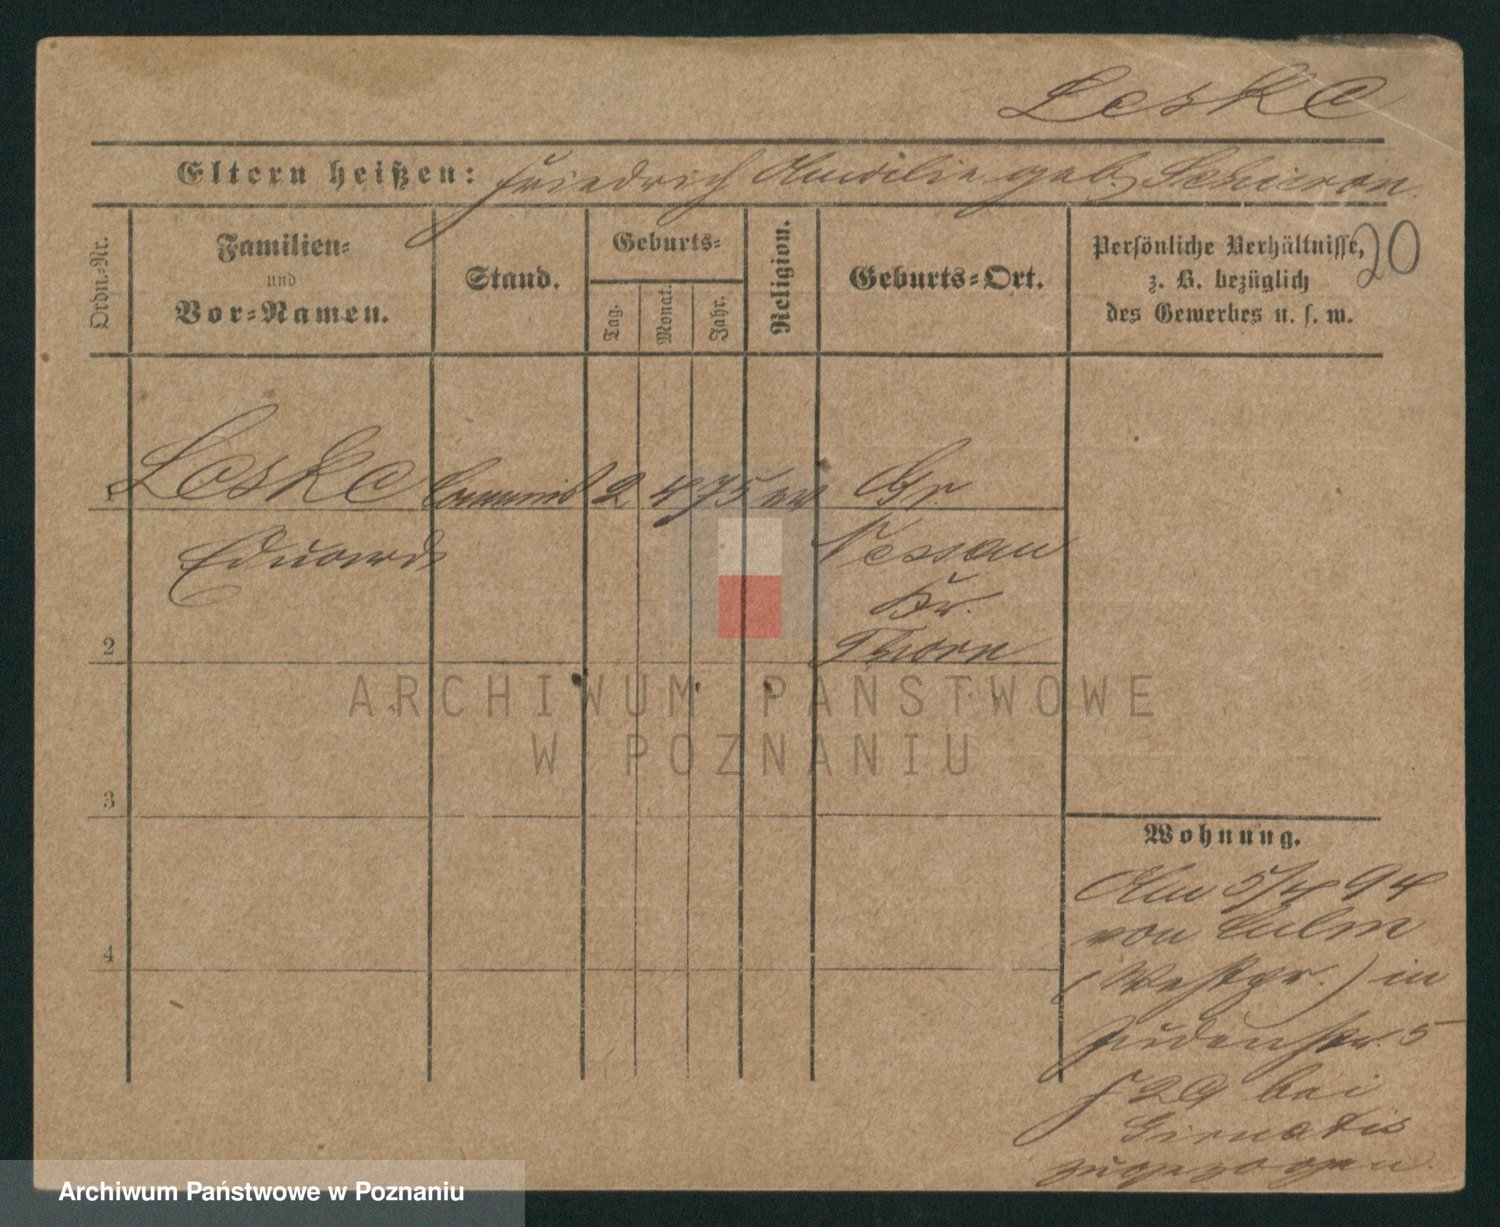 Leske
Eltern heißen: Friedrich Amilie geb.
Ordn.-Nr.
Familien-
und
Vor-Namen.
Stand.
Geburts-
Tag.
Monat.
Jahr.
Religion.
Geburts-Ort.
Persönliche Verhältnisse,
z. B. bezüglich
des Gewerbes u. s. w.
20
1 Leske Commis 2 4 75 Gr.
Eduard Nessau
Kr.
2 Thorn
ARCHIWUM PAŃSTWOWE
W POZNANIU
3
4
Wohnung.
Am 5/4 94
von Culm
(Westpr.) in
Judenstr. 5
bei
zugezogen
Archiwum Państwowe w Poznaniu